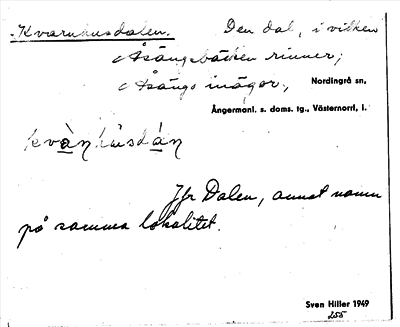 Kvarnhusdalen. Den dal, i vilken
Åsängsbäcken rinner;
Åsängs inägor, Nordingrå sn,
Ångermanl. s. doms. tg., Västernorrl. l.
kvànhùsdán
Jfr Dalen, annat namn
på samma lokalitet.
Sven Hiller 1949
255